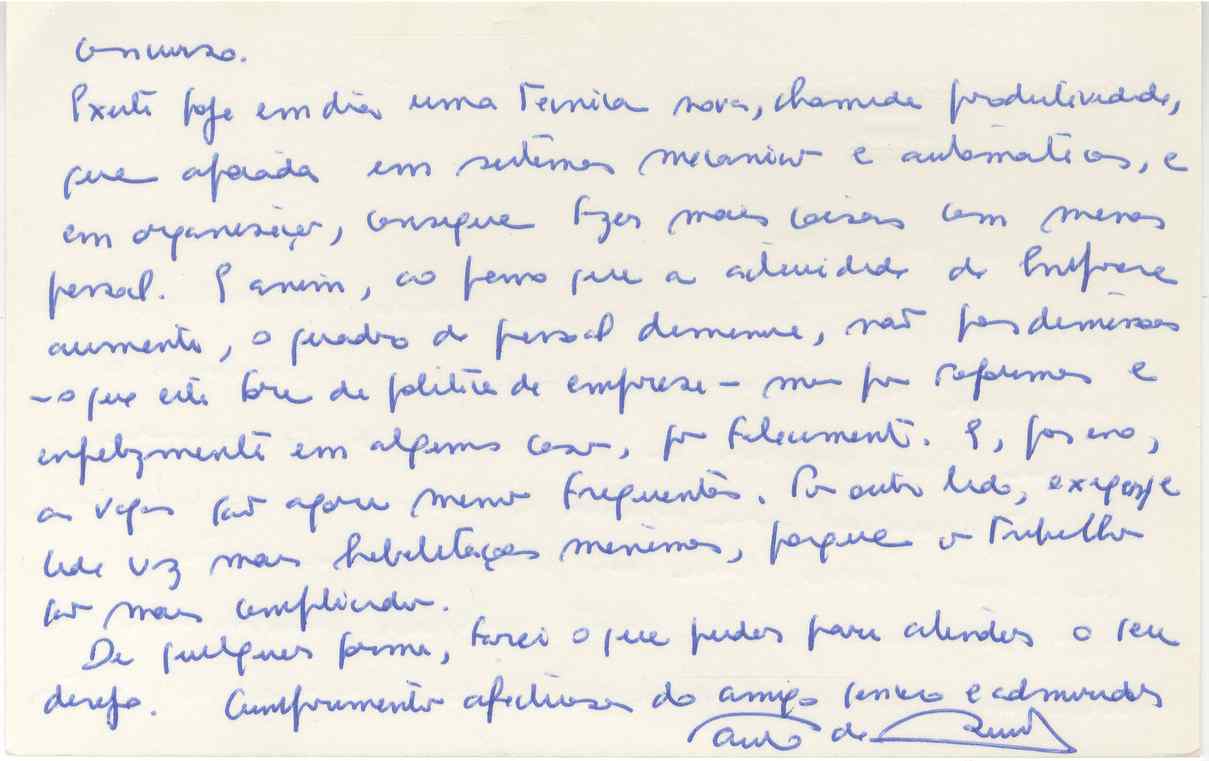 concurso.
Existe hoje em dia uma técnica nova, chamada produtividade,
que apoiada em sistemas mecanicos e automáticos, e
em organização, consegue fazer mais coisas com menos
pessoal. E assim, ao passo que a actividade da Empresa
aumenta, o quadro de pessoal diminue, não por demissões
- o que está fora da politica da empresa - mas por reformas e
infelizmente em alguns casos, por falecimento. E, por isso,
as vagas são agora menos frequentes. Por outro lado, exige-se
cada vez mais habilitações minimas, porque os trabalhos
são mais complicados.
De qualquer forma, farei o que puder para atender o seu
desejo. Cumprimentos afectuosos do amigo sincero e admirador